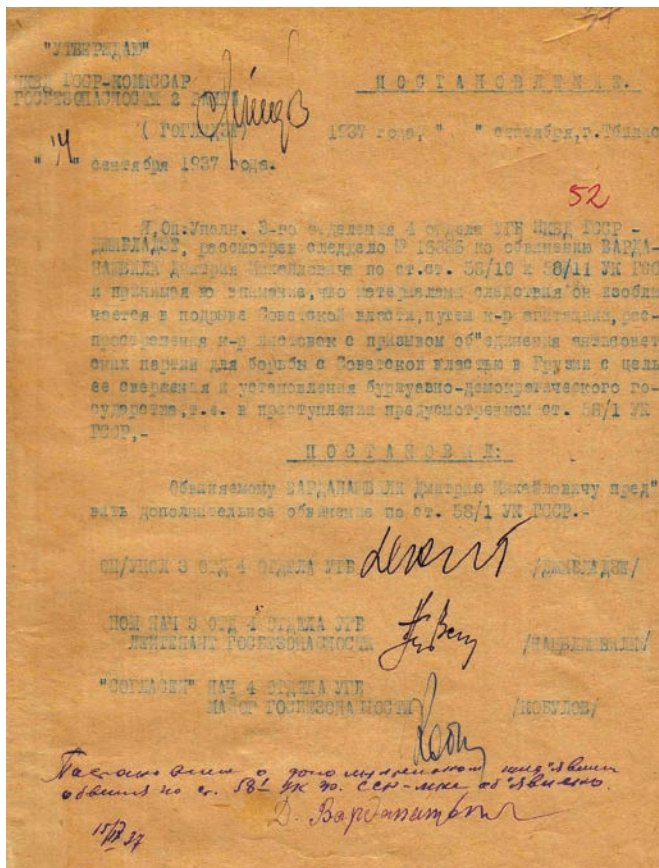 "УТВЕРЖДАЮ"
НКВД ГССР-КОМИССАР
ГОСБЕЗОПАСНОСТИ 2 РАНГА
(ГОГЛИДЗЕ)
"14" сентября 1937 года.
ПОСТАНОВЛЕНИЕ.
1937 года, " " сентября, г. Тбилис
52
Я, Оп.Уполн. 3-го отделения 4 отдела УГБ НКВД ГССР -
рассмотрев следдело № по обвинению ВАРДА-
НАШВИЛИ Дмитрия Михайловича по ст.ст. 58/10 и 58/11 УК ГСС
и принимая во внимание, что материалами следствия он изобли
чается в подрыве Советской власти, путем к-р агитации, рас-
пространения к-р листовок с призывом об"единения антисовет
ских партий для борьбы с Советской властью в Грузии с целью
ее свержения и установления буржуазно-демократического го-
сударства, т.е. в преступлении предусмотренном ст. 58/1 УК
ГССР,-
ПОСТАНОВИЛ:
Обвиняемому ВАРДАНАШВИЛИ Дмитрию Михайловичу пред"
вить дополнительное обвинение по ст. 58/1 УК ГССР.-
ОП/УПОЛ 3 ОТД 4 ОТДЕЛА УГБ
ПОМ НАЧ 3 ОТД 4 ОТДЕЛА УГБ
ЛЕЙТЕНАНТ ГОСБЕЗОПАСНОСТИ
"СОГЛАСЕН" НАЧ 4 ОТДЕЛА УГБ
МАЙОР ГОСБЕЗОПАСНОСТИ /КОБУЛОВ/
о дополнительном
по ст. 58¹ УК об'явлено.
Д. Варданашвили
15/IX 37